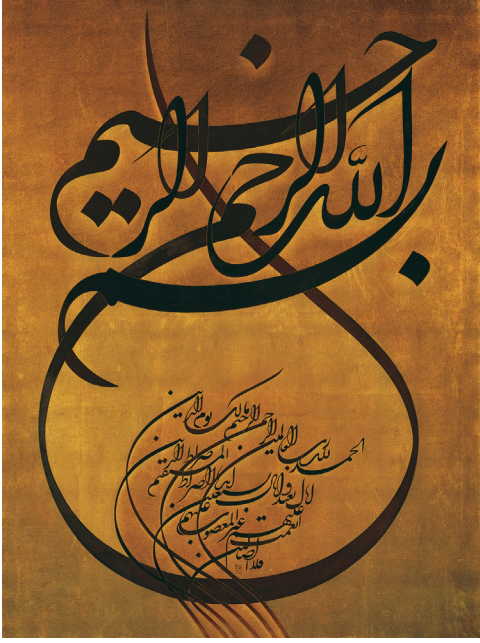 بسم الله الرحمن الرحيم
الحمد لله رب العالمين الرحمن الرحيم مالك يوم الدين
اياك نعبد واياك نستعين اهدنا الصراط المستقيم
صراط الذين انعمت عليهم
غير المغضوب عليهم
ولا الضالين